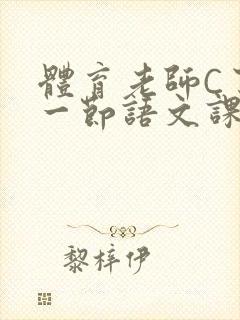 體育老師C
一節語文課
黎梓伊